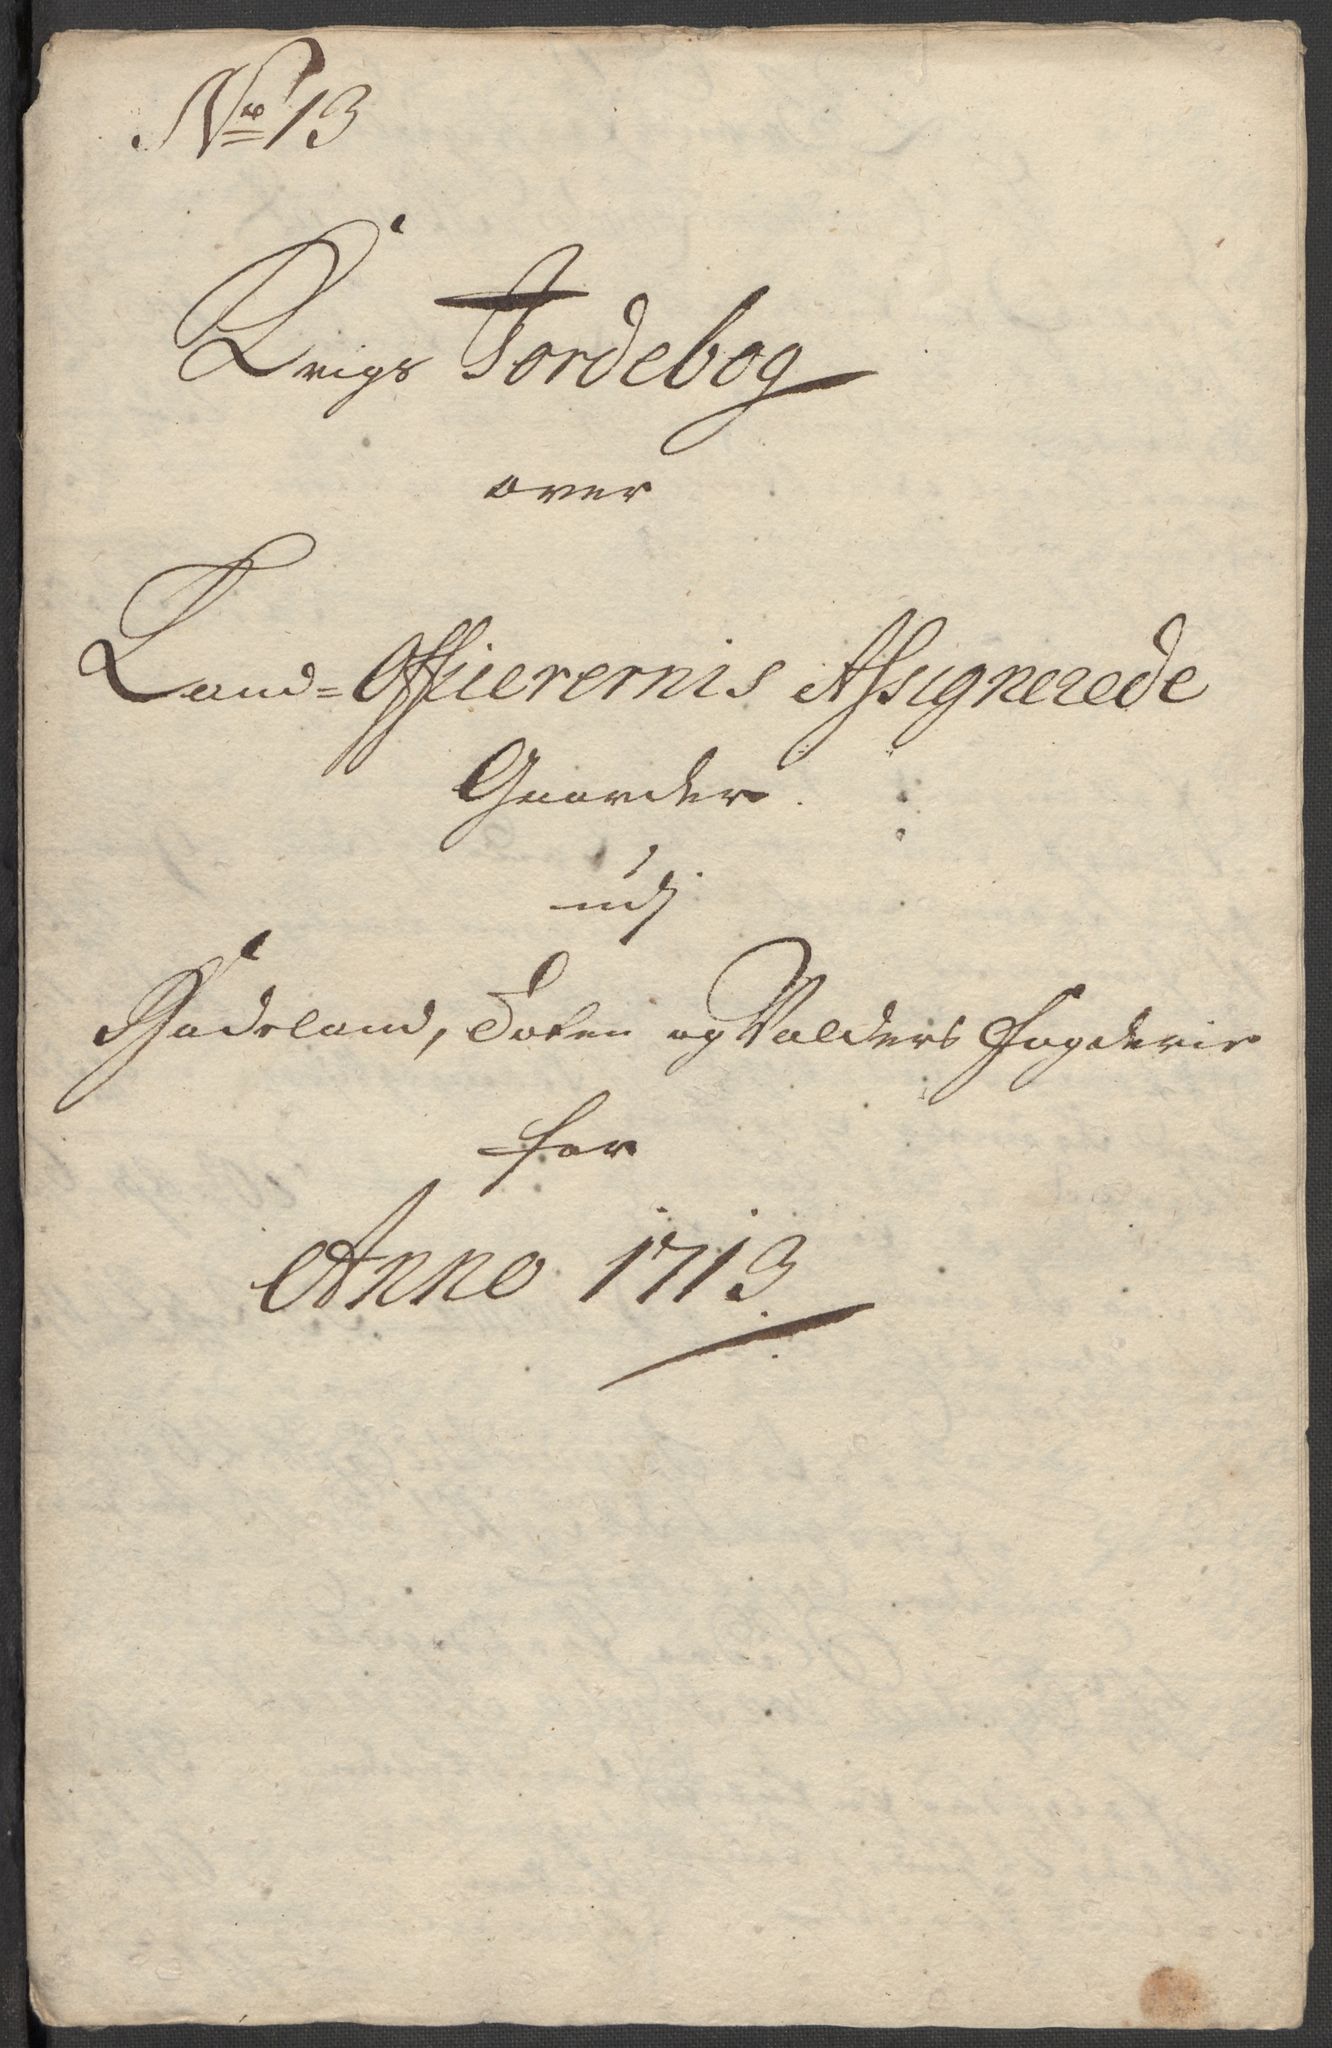 No 13
Krigs Jordebog
over
Land=Officierernis Assignerede
Gaarder
udj
Hadeland, Toten og Valders Fogderie
for
Anno 1713